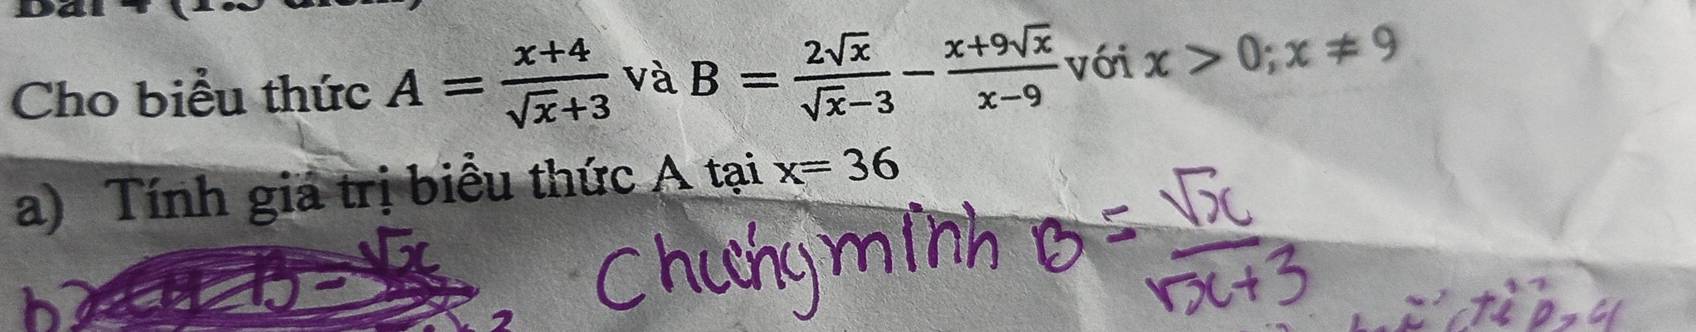 Cho biểu thức A = \frac{x+4}{\sqrt{x}+3} và B = \frac{2\sqrt{x}}{\sqrt{x}-3} - \frac{x+9\sqrt{x}}{x-9} với x > 0; x ≠ 9
a) Tính giá trị biểu thức A tại x= 36
b) Chứng minh B = \frac{\sqrt{x}}{\sqrt{x}+3}